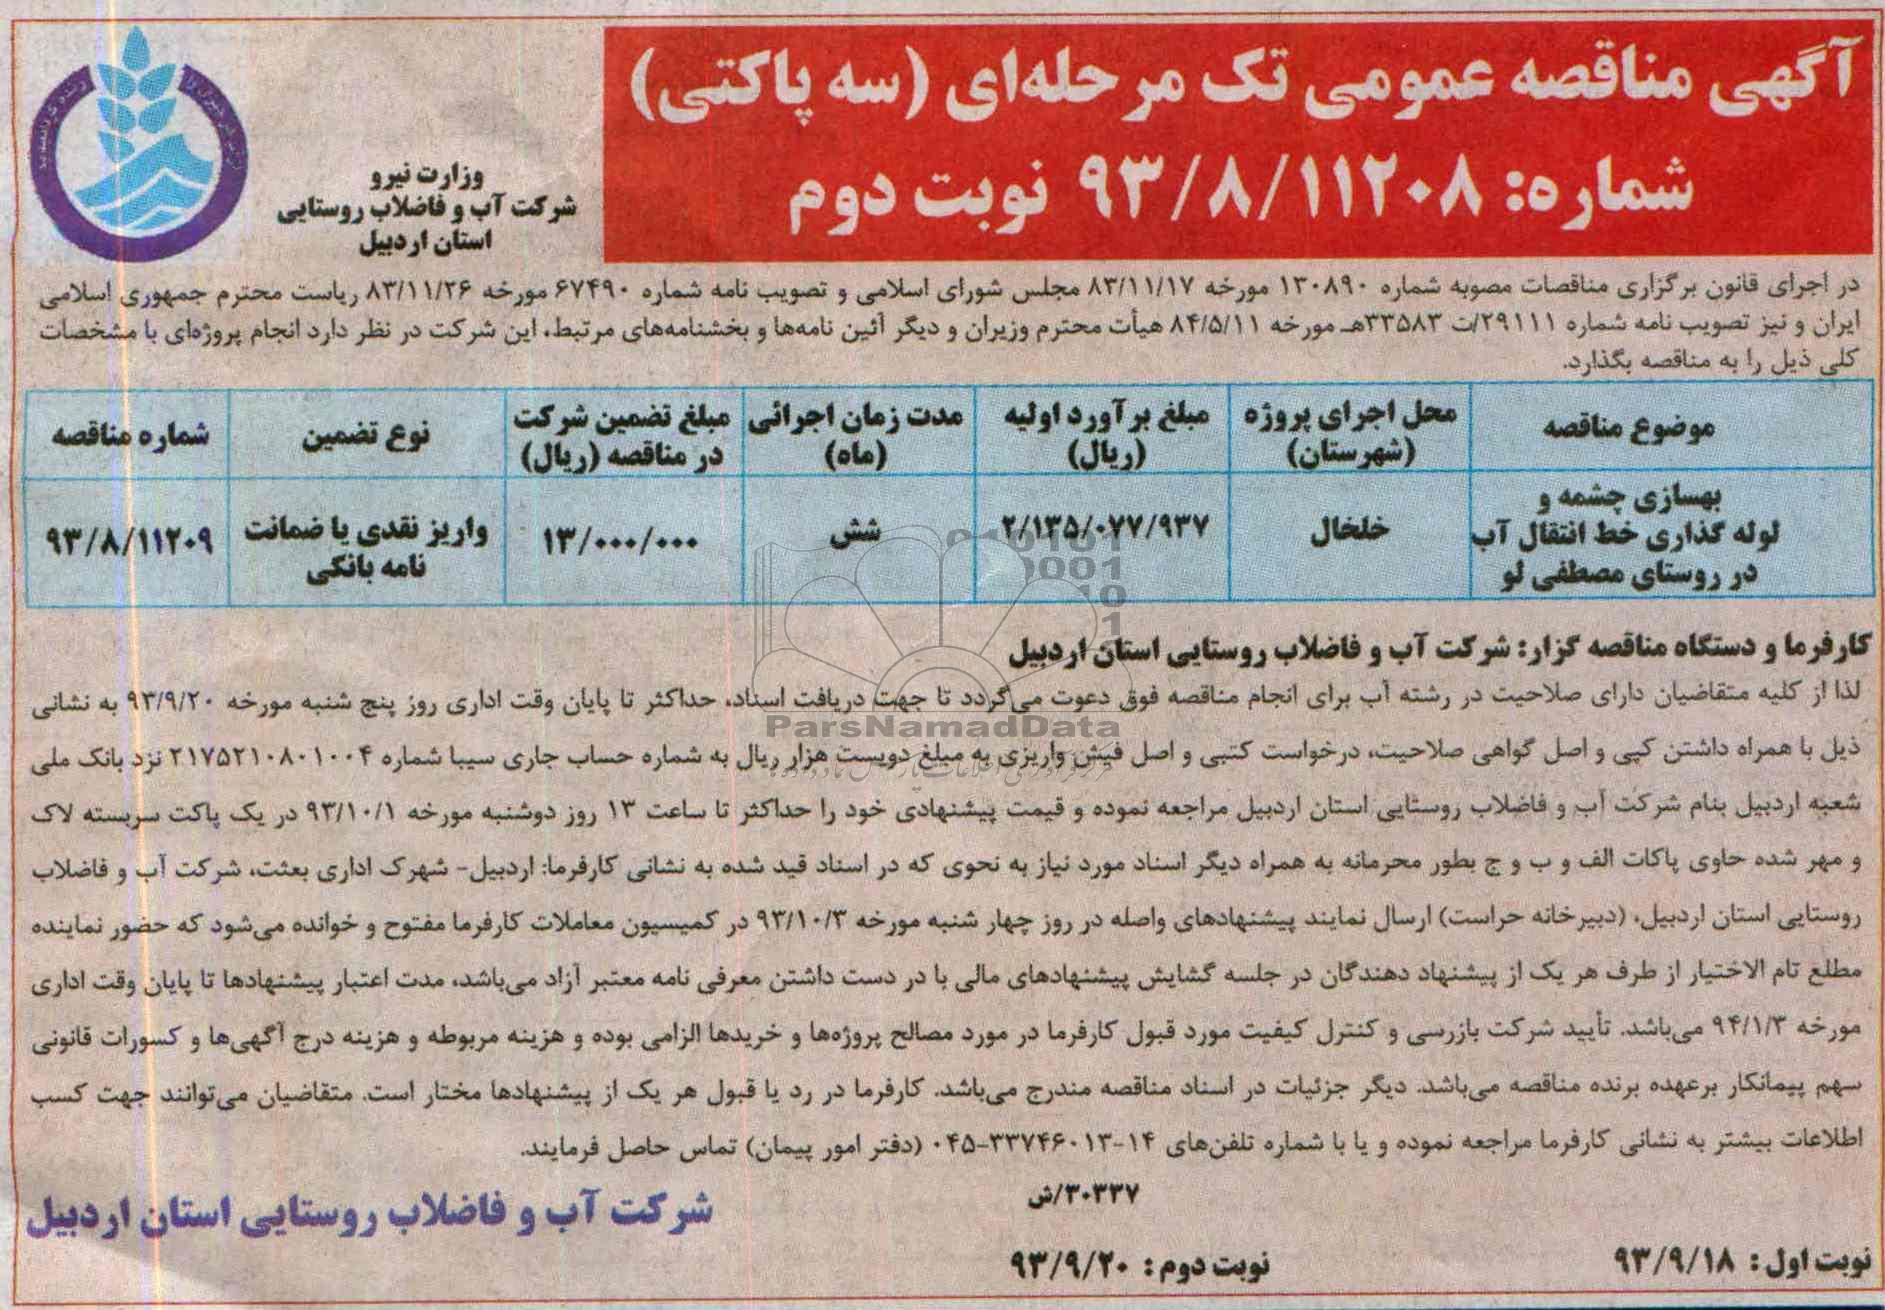 آگهی مناقصه عمومی تک مرحله‌ای (سه پاکتی)
شماره: ۹۳/۸/۱۱۲۰۸ نوبت دوم
وزارت نیرو
شرکت آب و فاضلاب روستایی
استان اردبیل
در اجرای قانون برگزاری مناقصات مصوبه شماره ۱۳۰۸۹۰ مورخه ۸۳/۱۱/۱۷ مجلس شورای اسلامی و تصویب نامه شماره ۶۷۴۹۰ مورخه ۸۳/۱۱/۲۶ ریاست محترم جمهوری اسلامی
ایران و نیز تصویب نامه شماره ۲۹۱۱۱/ت ۳۳۵۸۳هـ مورخه ۸۴/۵/۱۱ هیأت محترم وزیران و دیگر آئین نامه‌ها و بخشنامه‌های مرتبط، این شرکت در نظر دارد انجام پروژه‌ای با مشخصات
کلی ذیل را به مناقصه بگذارد.
موضوع مناقصه
محل اجرای پروژه
(شهرستان)
مبلغ برآورد اولیه
(ریال)
مدت زمان اجرائی
(ماه)
مبلغ تضمین شرکت
در مناقصه (ریال)
نوع تضمین
شماره مناقصه
بهسازی چشمه و
لوله گذاری خط انتقال آب
در روستای مصطفی لو
خلخال
۲/۱۳۵/۰۷۷/۹۳۷
شش
۱۳/۰۰۰/۰۰۰
واریز نقدی یا ضمانت
نامه بانکی
۹۳/۸/۱۱۲۰۹
کارفرما و دستگاه مناقصه گزار: شرکت آب و فاضلاب روستایی استان اردبیل
لذا از کلیه متقاضیان دارای صلاحیت در رشته آب برای انجام مناقصه فوق دعوت می‌گردد تا جهت دریافت اسناد، حداکثر تا پایان وقت اداری روز پنج شنبه مورخه ۹۳/۹/۲۰ به نشانی
ذیل با همراه داشتن کپی و اصل گواهی صلاحیت، درخواست کتبی و اصل فیش واریزی به مبلغ دویست هزار ریال به شماره حساب جاری سیبا شماره ۲۱۷۵۲۱۰۸۰۱۰۰۴ نزد بانک ملی
شعبه اردبیل بنام شرکت آب و فاضلاب روستایی استان اردبیل مراجعه نموده و قیمت پیشنهادی خود را حداکثر تا ساعت ۱۳ روز دوشنبه مورخه ۹۳/۱۰/۱ در یک پاکت سربسته لاک
و مهر شده حاوی پاکات الف و ب و ج بطور محرمانه به همراه دیگر اسناد مورد نیاز به نحوی که در اسناد قید شده به نشانی کارفرما: اردبیل- شهرک اداری بعثت، شرکت آب و فاضلاب
روستایی استان اردبیل، (دبیرخانه حراست) ارسال نمایند پیشنهادهای واصله در روز چهار شنبه مورخه ۹۳/۱۰/۳ در کمیسیون معاملات کارفرما مفتوح و خوانده می‌شود که حضور نماینده
مطلع تام الاختیار از طرف هر یک از پیشنهاد دهندگان در جلسه گشایش پیشنهادهای مالی با در دست داشتن معرفی نامه معتبر آزاد می‌باشد، مدت اعتبار پیشنهادها تا پایان وقت اداری
مورخه ۹۴/۱/۳ می‌باشد. تأیید شرکت بازرسی و کنترل کیفیت مورد قبول کارفرما در مورد مصالح پروژه‌ها و خریدها الزامی بوده و هزینه مربوطه و هزینه درج آگهی‌ها و کسورات قانونی
سهم پیمانکار برعهده برنده مناقصه می‌باشد. دیگر جزئیات در اسناد مناقصه مندرج می‌باشد. کارفرما در رد یا قبول هر یک از پیشنهادها مختار است. متقاضیان می‌توانند جهت کسب
اطلاعات بیشتر به نشانی کارفرما مراجعه نموده و یا با شماره تلفن‌های ۱۴-۳۳۷۴۶۰۱۳-۰۴۵ (دفتر امور پیمان) تماس حاصل فرمایند.
۳۰۳۳۷/ش
شرکت آب و فاضلاب روستایی استان اردبیل
نوبت اول: ۹۳/۹/۱۸
نوبت دوم: ۹۳/۹/۲۰
ParsNamadData